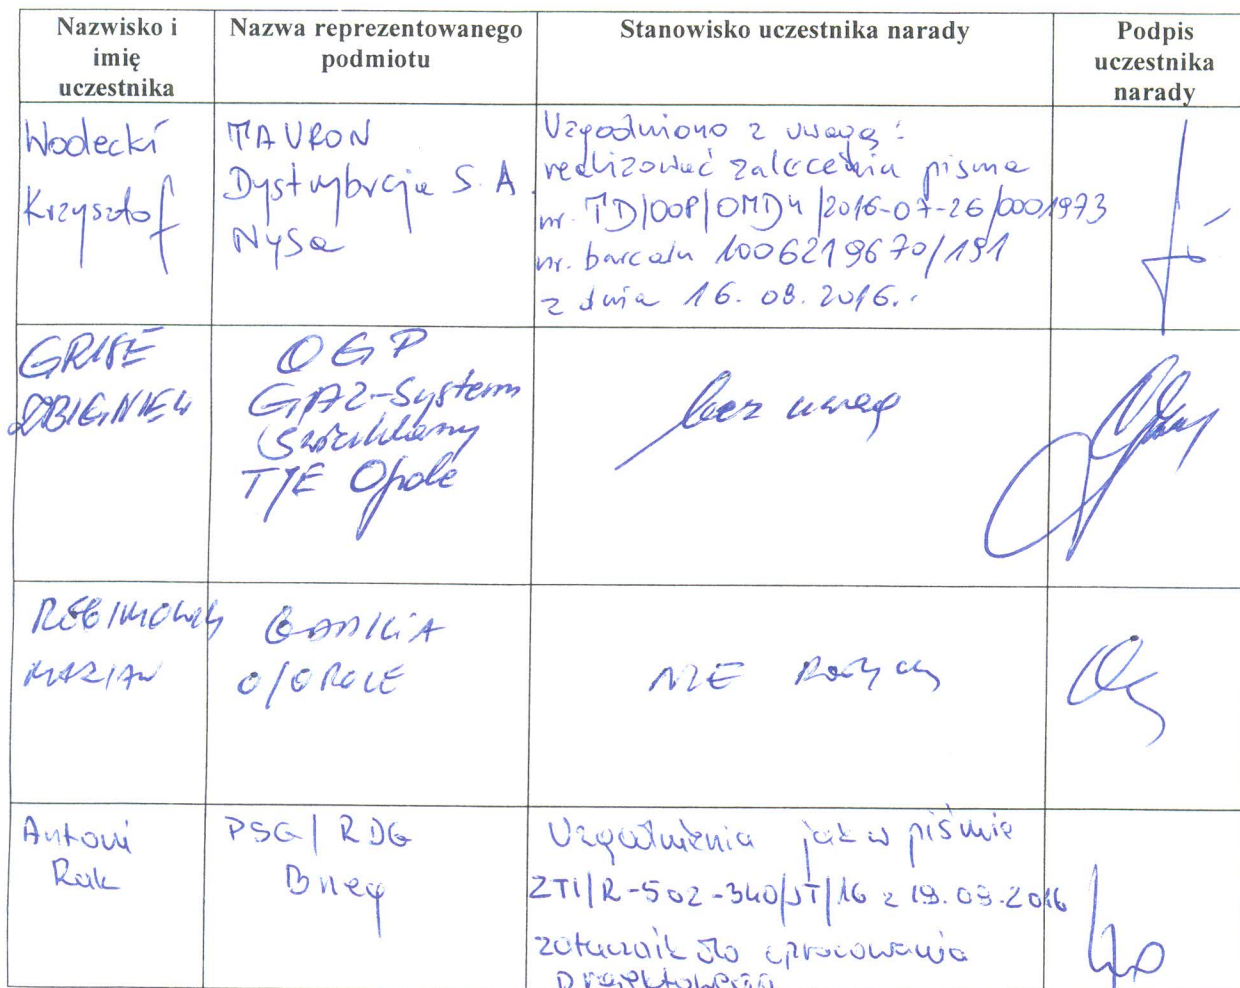 Nazwisko i
imię
uczestnika
Nazwa reprezentowanego
podmiotu
Stanowisko uczestnika narady
Podpis
uczestnika
narady
Wodecki
Krzysztof
TAURON
Dystrybucja S.A.
Nysa
Uzgodniono z uwagą:
realizować zalecenia pisma
nr. TD/OOP/OMD4/2016-07-26/0001973
nr. barcodu 1006219670/191
z dnia 16.08.2016.
ZBIGNIEW
OGP
GAZ-System
Świerklany
TJE Opole
bez uwag
MARIAN
O/OPOLE
NIE
Antoni
Rak
PSG/RDG
Brzeg
Uzgodnienia jak w piśmie
ZTI/R-502-340/JT/16 z 19.09.2016
załącznik do opracowania
projektowego